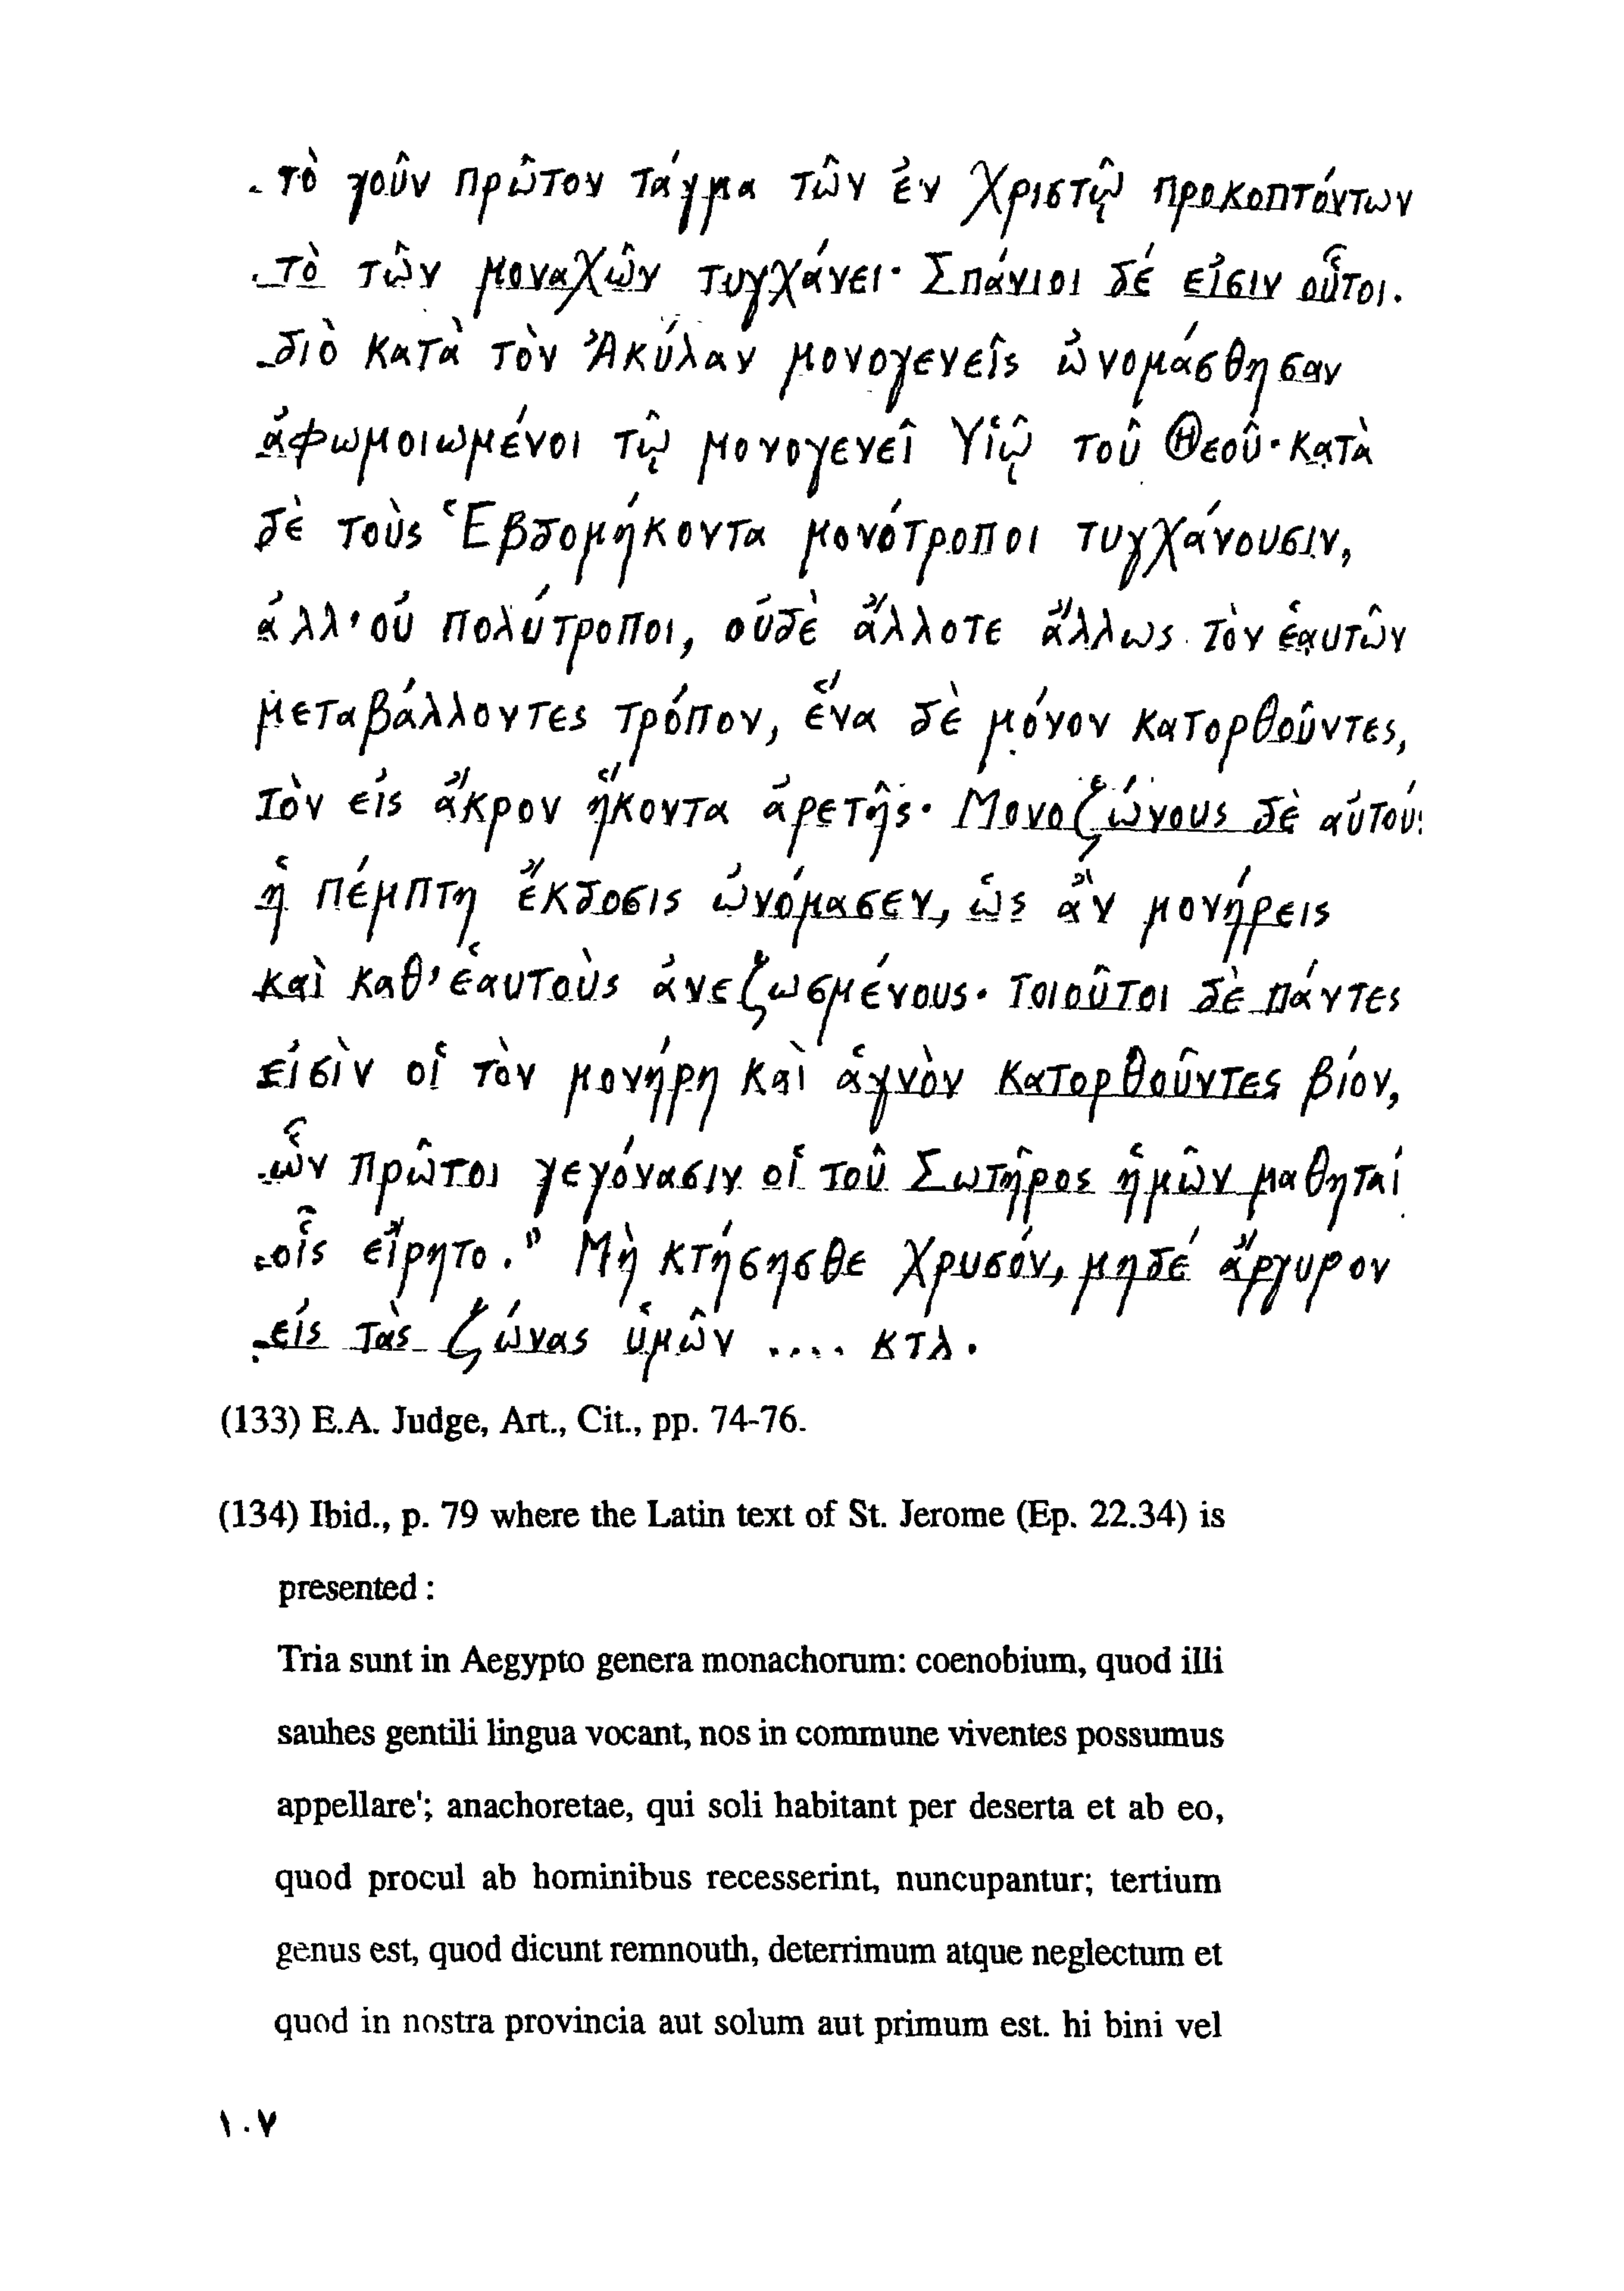 τὸ γοῦν πρῶτον τάγμα τῶν ἐν Χριστῷ προκοπτόντων
τὸ τῶν μοναχῶν τυγχάνει· Σπάνιοι δέ εἰσιν οὗτοι.
διὸ κατὰ τὸν Ἀκύλαν μονογενεῖς ὠνομάσθησαν
ἀφωμοιωμένοι τῷ μονογενεῖ Υἱῷ τοῦ Θεοῦ· κατὰ
δὲ τοὺς Ἑβδομήκοντα μονότροποι τυγχάνουσιν,
ἀλλ' οὐ πολύτροποι, οὐδὲ ἄλλοτε ἄλλως τὸν ἑαυτῶν
μεταβάλλοντες τρόπον, ἕνα δὲ μόνον κατορθοῦντες,
τὸν εἰς ἄκρον ἥκοντα ἀρετῆς· Μονοζώνους δὲ αὐτούς
ἡ πέμπτη ἔκδοσις ὠνόμασεν, ὡς ἂν μονήρεις
καὶ καθ' ἑαυτοὺς ἀνεζωσμένους· τοιοῦτοι δὲ πάντες
εἰσὶν οἱ τὸν μονήρη καὶ ἁγνὸν κατορθοῦντες βίον,
ὧν πρῶτοι γεγόνασιν οἱ τοῦ Σωτῆρος ἡμῶν μαθηταί
οἷς εἴρητο." Μὴ κτήσησθε χρυσόν, μηδέ ἄργυρον
εἰς τὰς ζώνας ὑμῶν .... κτλ.
(133) E.A. Judge, Art., Cit., pp. 74-76.
(134) Ibid., p. 79 where the Latin text of St. Jerome (Ep. 22.34) is
presented :
Tria sunt in Aegypto genera monachorum: coenobium, quod illi
sauhes gentili lingua vocant, nos in commune viventes possumus
appellare'; anachoretae, qui soli habitant per deserta et ab eo,
quod procul ab hominibus recesserint, nuncupantur; tertium
genus est, quod dicunt remnouth, deterrimum atque neglectum et
quod in nostra provincia aut solum aut primum est. hi bini vel
١٠٧